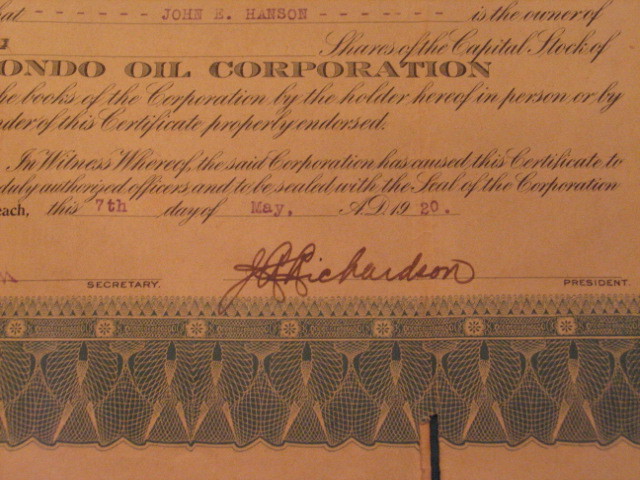 hat JOHN E. HANSON is the owner of
Shares of the Capital Stock of
ONDO OIL CORPORATION
he books of the Corporation by the holder hereof in person or by
nder of this Certificate properly endorsed.
In Witness Whereof, the said Corporation has caused this Certificate to
duly authorized officers and to be sealed with the Seal of the Corporation
each, this 7th day of May, A.D. 1920.
Richardson
SECRETARY. PRESIDENT.